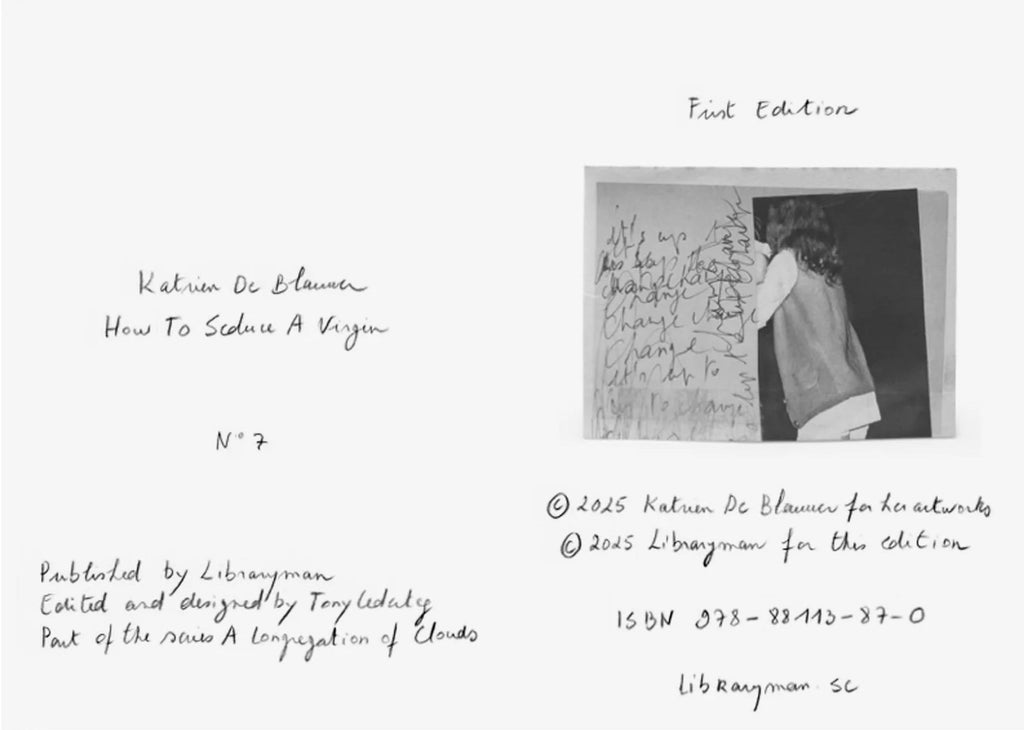 Katrien De Blauwer
How To Seduce A Virgin
N° 7
Published by Libraryman
Edited and designed by Tony
Part of the series A Congregation of Clouds
First Edition
it's up
change
Change
Change
it's up to
up to change
© 2025 Katrien De Blauwer for her artworks
© 2025 Libraryman for this edition
ISBN 978-88113-87-0
Libraryman.se